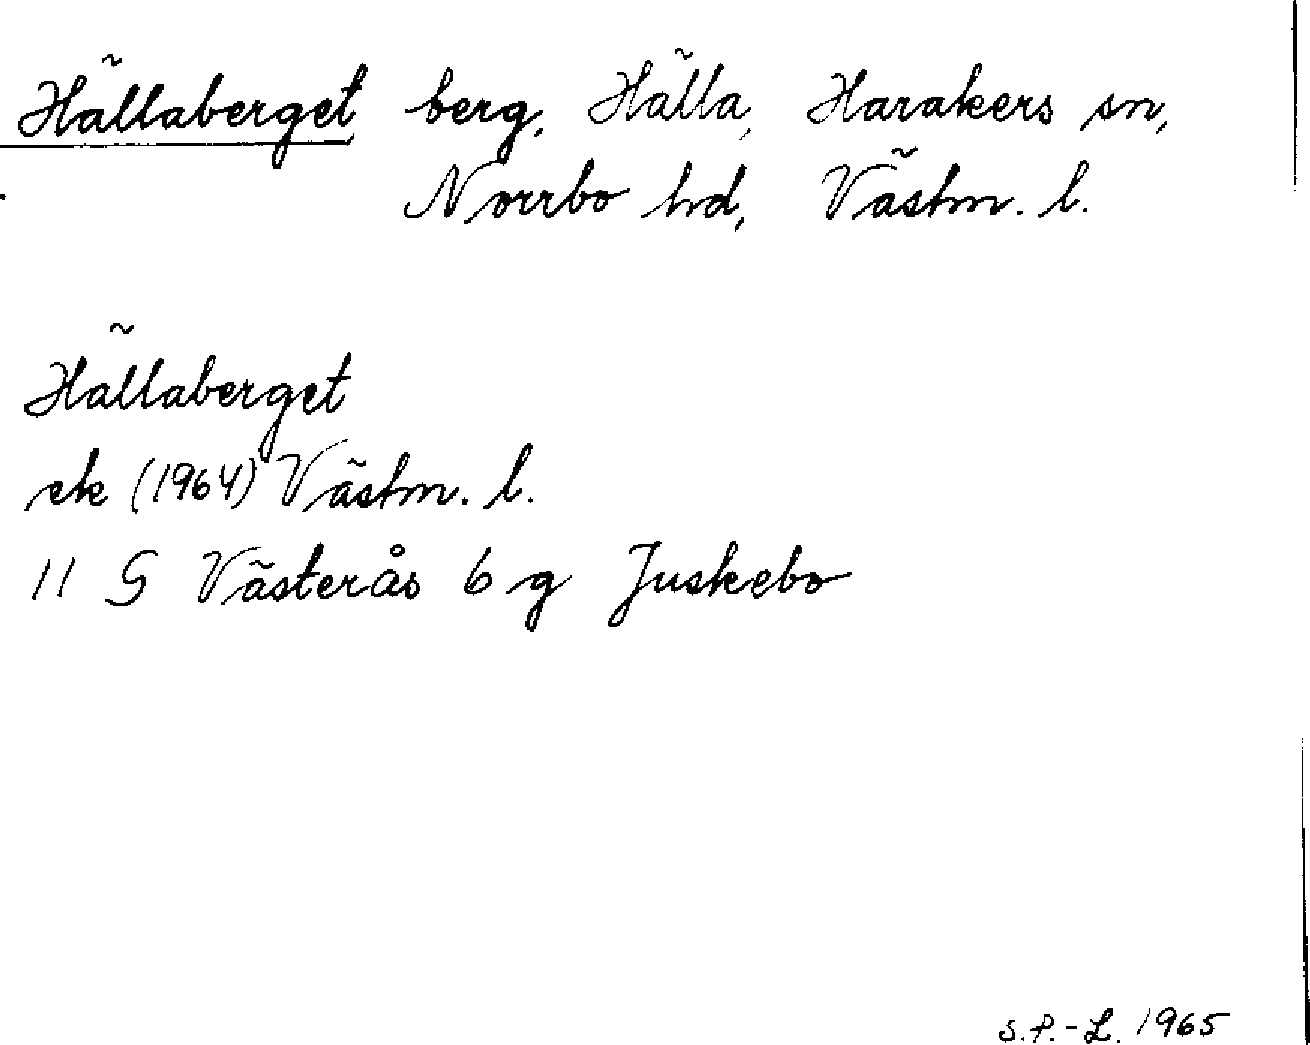 Hällaberget berg, Hälla, Harakers sn,
Norrbo hd, Västm. l.
Hällaberget
ek (1964) Västm. l.
11 G Västerås 6 g Juskebo
S.P.-L. 1965